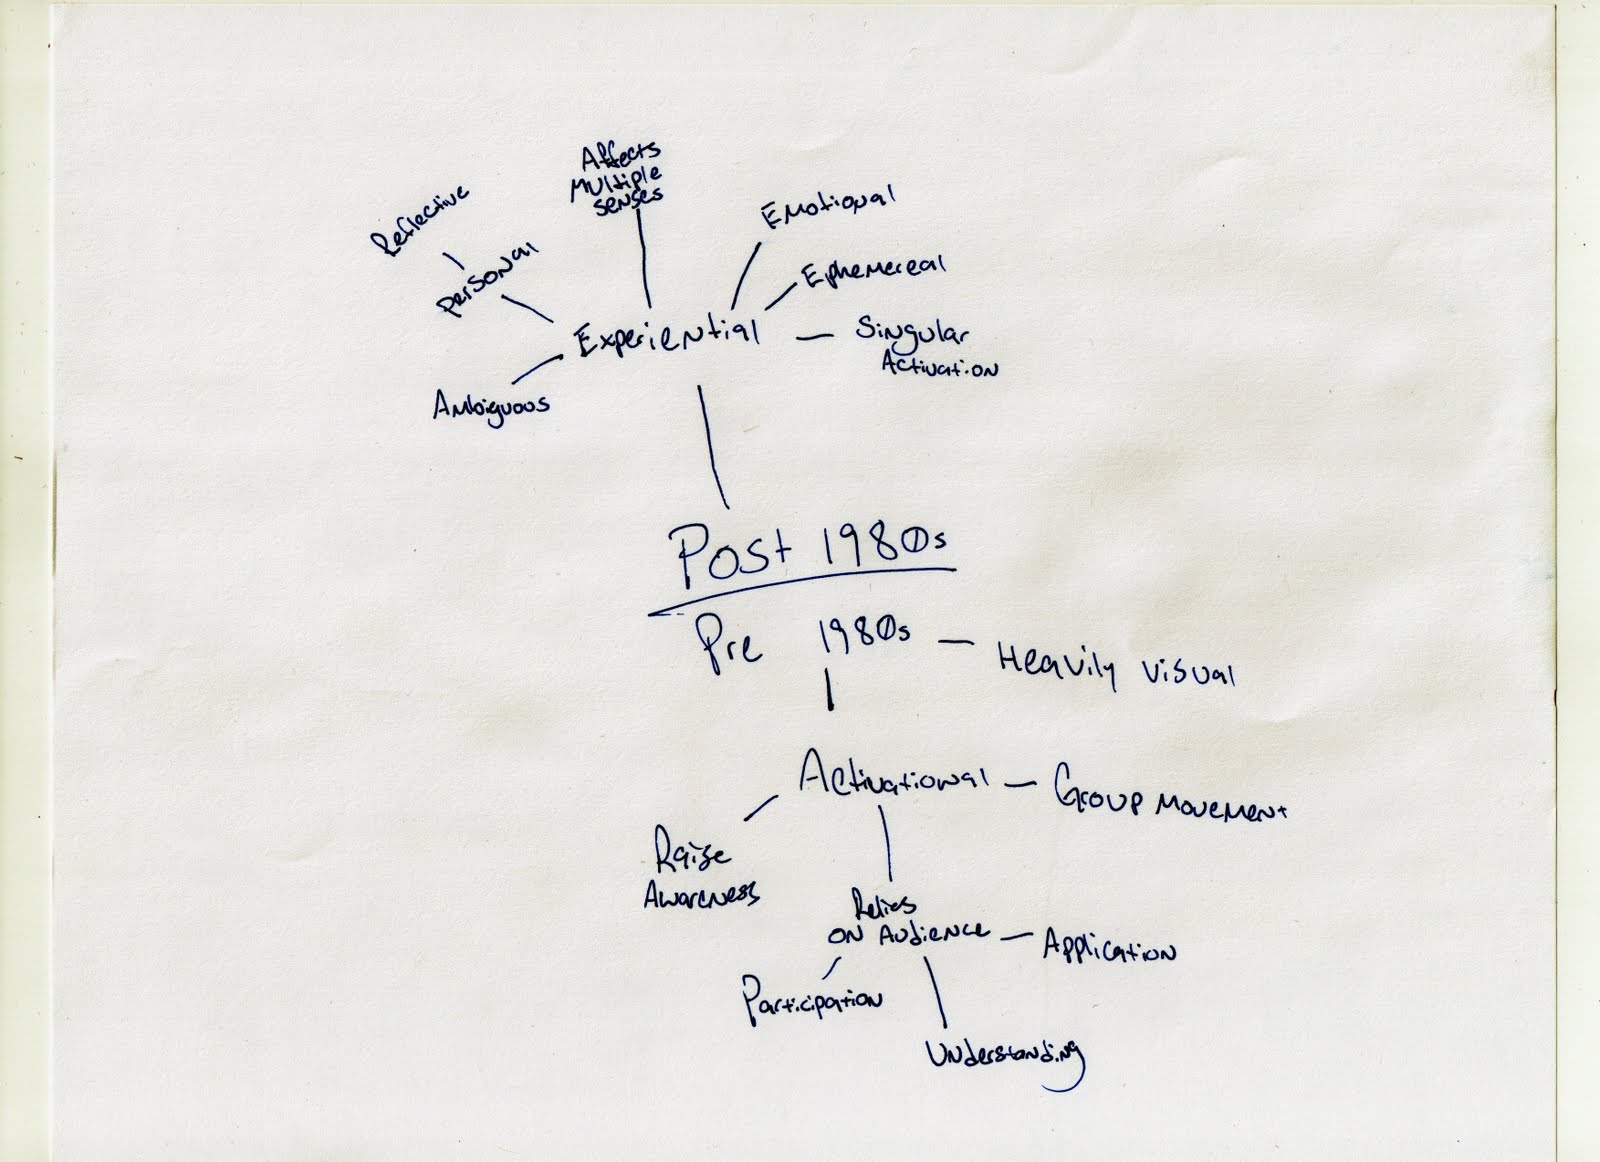 Affects
Multiple
senses
Reflective
Personal
Emotional
Ephemereal
Experiential
Singular
Activation
Ambiguous
Post 1980s
Pre 1980s
Heavily visual
Activational
Group Movement
Raise
Awareness
Relies
on Audience
Application
Participation
Understanding